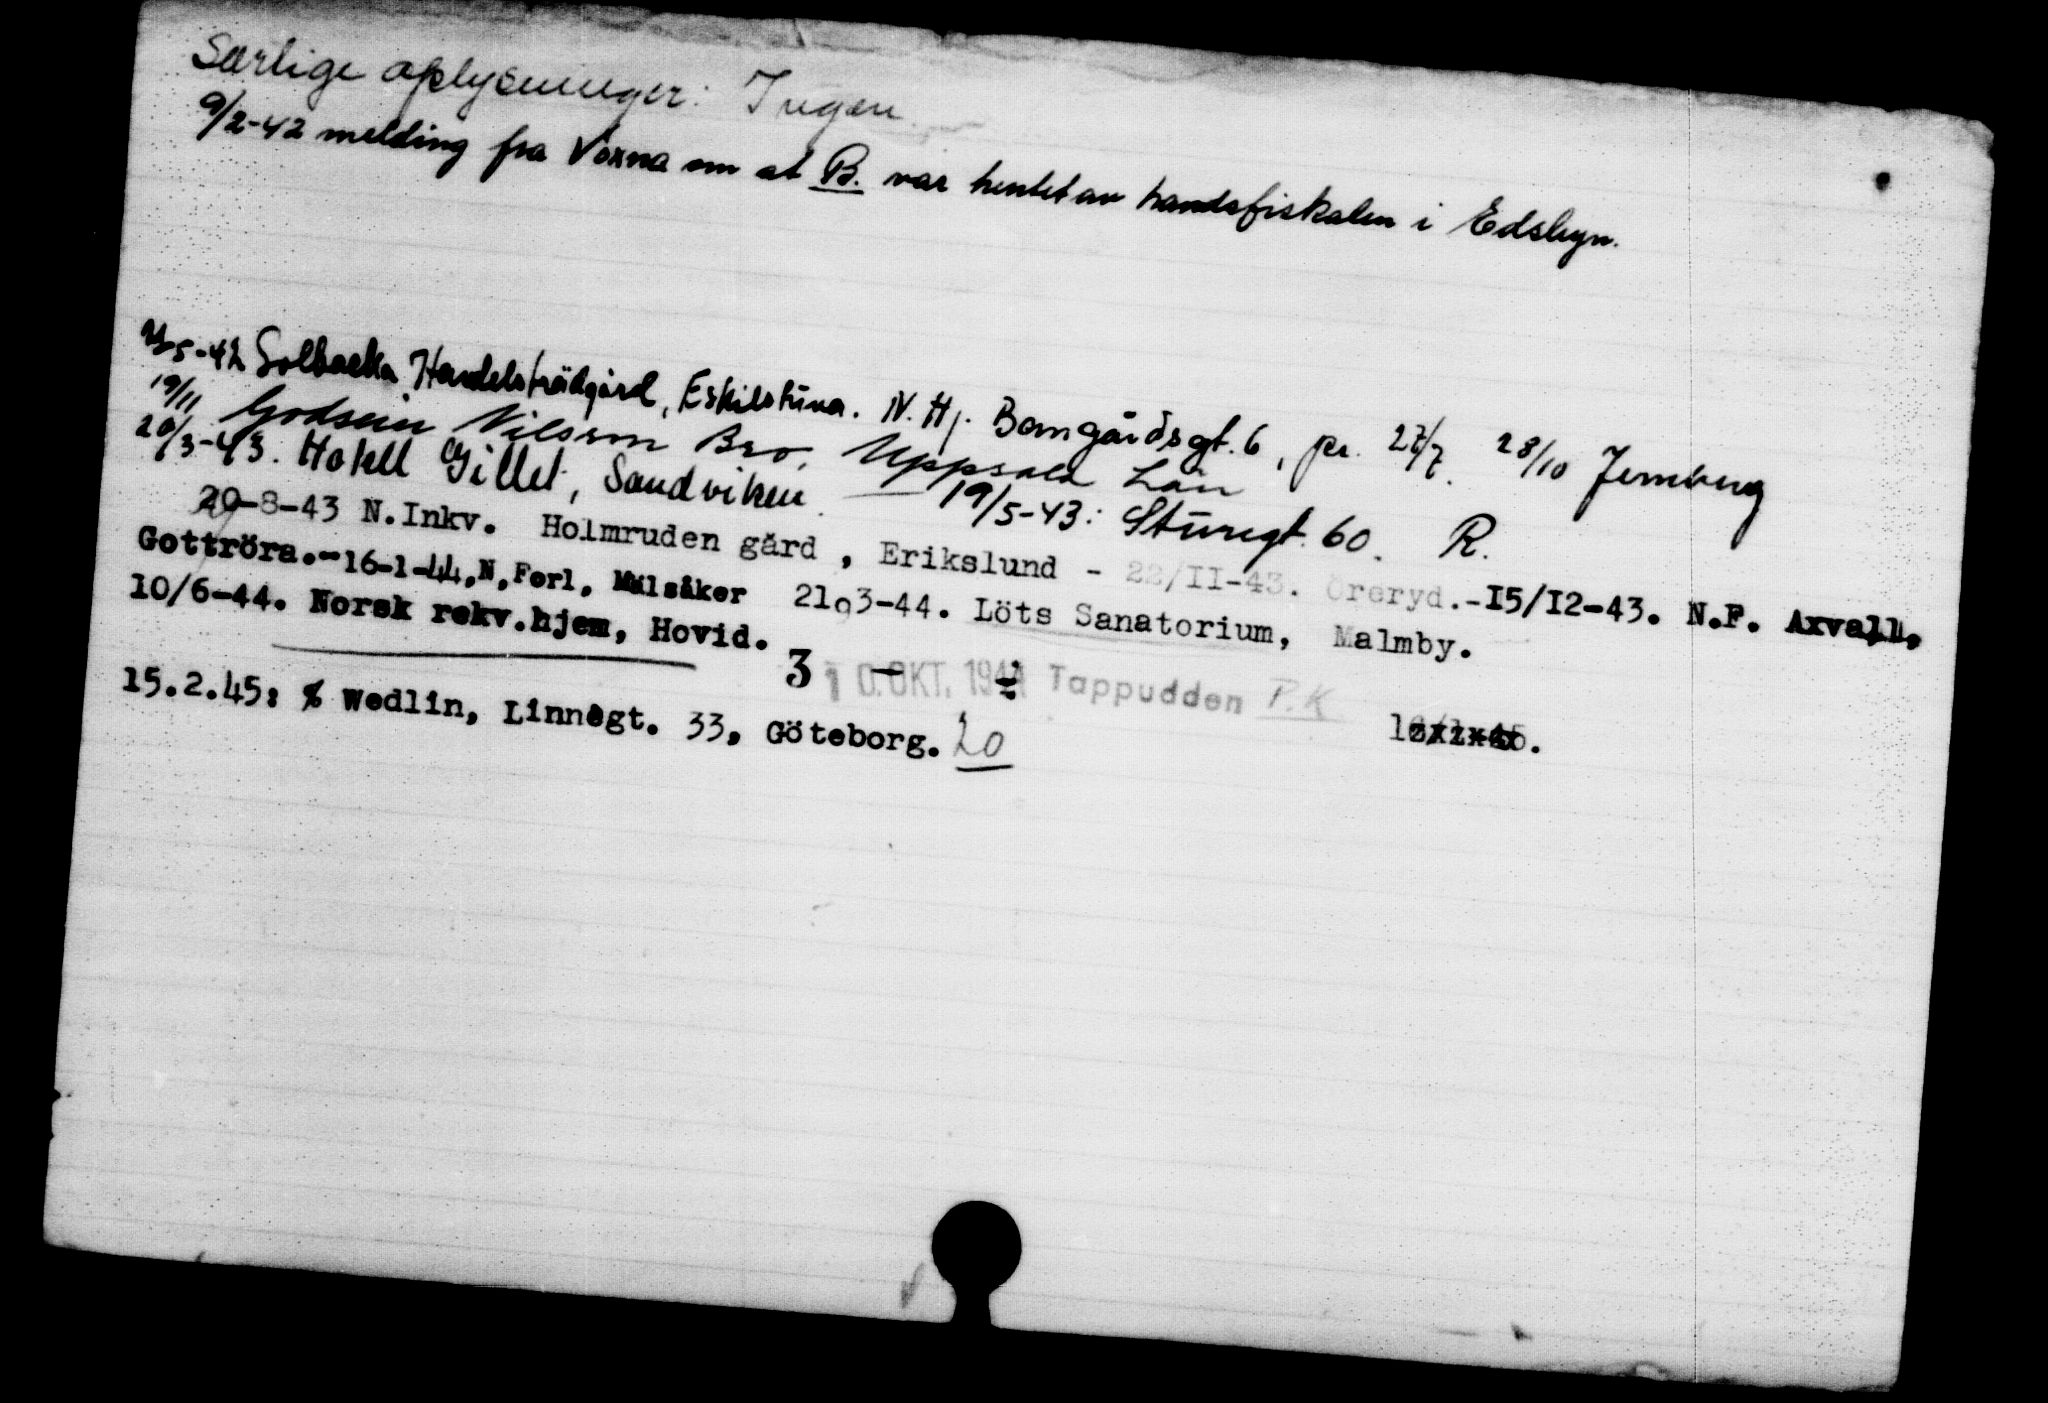 Særlige oplysninger: Ingen.
9/2-42 melding fra Voxna om at B. var hentet av landsfiskalen i Edsbyn.
5-42 Solbacka Handelsträdgård, Eskilstuna. N. Hj. Bomgårdsgt. 6, pr. 27/7. 28/10 Jernberg
19/11 Godseier Nilsson Bro, Uppsala Län
20/3-43. Hotell Gillet, Sandviken. — 19/5-43: Sturegt. 60. R.
20-8-43 N.Inkv. Holmruden gård, Erikslund - 22/II-43. Öreryd.-I5/I2-43. N.F. Axvall,
Gottröra.-16-1-44,N,Forl, Målsåker 21,3-44. Löts Sanatorium, Malmby.
10/6-44. Norsk rekv.hjem, Hovid.
3 - 10.OKT. 1944 Tappudden P.K
15.2.45: % Wedlin, Linnégt. 33, Göteborg. 20